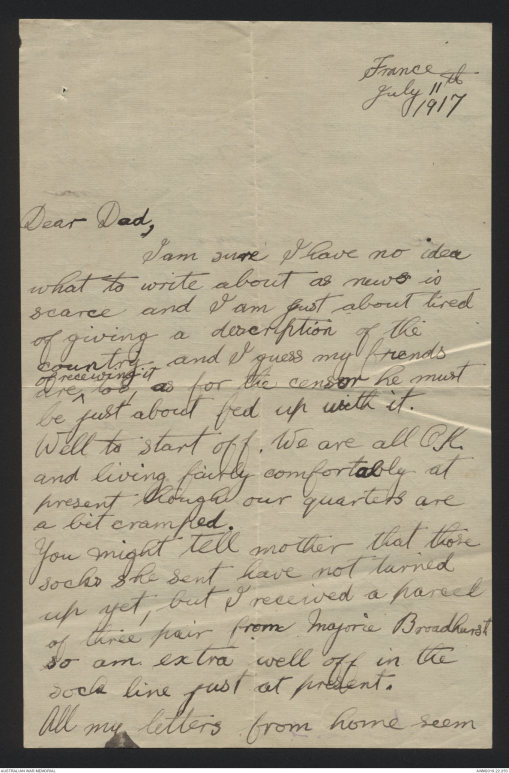 France
July 11th
1917
Dear Dad,
I am sure I have no idea
what to write about as news is
scarce and I am just about tired
of giving a description of the
country and I guess my friends
of receiving it
are, too as for the censor he must
be just about fed up with it.
Well to start off. We are all O.K.
and living fairly comfortably at
present though our quarters are
a bit cramped.
You might tell mother that those
socks she sent have not turned
up yet, but I received a parcel
of three pair from Majorie Broadhurst
so am extra well off in the
sock line just at present.
All my letters from home seem
AUSTRALIAN WAR MEMORIAL